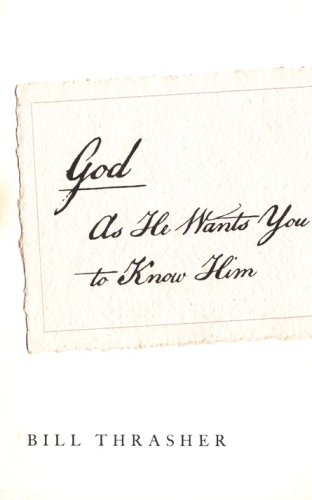 God
As He Wants You
to Know Him
BILL THRASHER